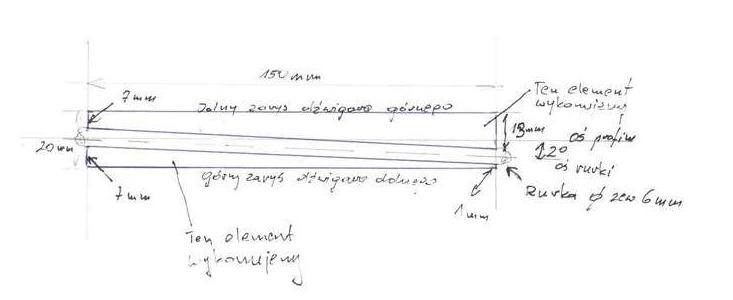 150 mm
7 mm
Dolny zarys dźwigara górnego
Ten element
wykonujemy
13mm
oś profilu
20 mm
2°
oś rurki
Górny zarys dźwigara dolnego
Rurka ϕ zew 6 mm
7 mm
1 mm
Ten element
wykonujemy